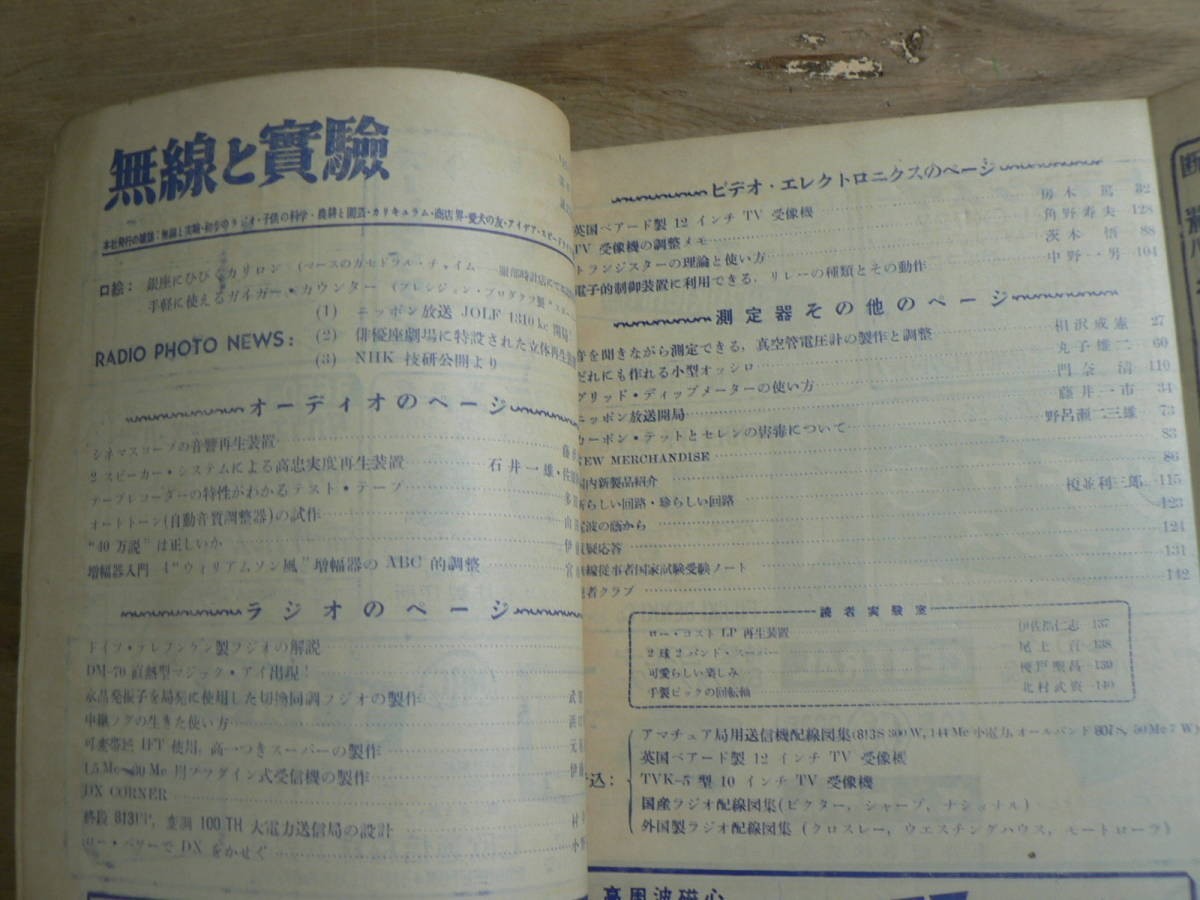 無線と實驗
本社発行の雑誌：無線と実験・初歩のラジオ・子供の科学・農耕と園芸・カリキュラム・商店界・愛犬の友・アイデア・スピード
口絵： 銀座にひびくカリロン（マースのカセドラル・チャイム
手軽に使えるガイガー・カウンター（プレシジョン・
RADIO PHOTO NEWS：
(1) ニッポン放送 JOLF 1310 kc 開局！
(2) 俳優座劇場に特設された立体再生
(3) NHK 技研公開より
オーディオのページ
シネマスコープの音響再生装置
2 スピーカー・システムによる高忠実度再生装置 石井一雄・佐
テープレコーダーの特性がわかるテスト・テープ
オートトーン(自動音質調整器)の試作
“40 万説”は正しいか
増幅器入門 4 “ウィリアムソン風”増幅器の ABC 的調整
ラジオのページ
ドイツ・テレフンケン製ラジオの解説
DM-70 直熱型マジック・アイ出現！
水晶発振子を局発に使用した切換同調ラジオの製作
中継ソケの生きた使い方
可変帯域 IFT 使用，高一つきスーパーの製作
1.5 Mc～30 Mc 用プラグイン式受信機の製作
DX CORNER
終段 813PP，変調 100 TH 大電力送信局の設計
ロー・パワーで DX をかせぐ
ビデオ・エレクトロニクスのページ
英国ベアード製 12 インチ TV 受像機 房木 篤 82
TV 受像機の調整メモ 角野寿夫 128
トランジスターの理論と使い方 茨木 悟 88
電子的制御装置に利用できる，リレーの種類とその動作 中野一男 104
測定器その他のページ
音を聞きながら測定できる，真空管電圧計の製作と調整 相沢成憲 27
だれにも作れる小型オッシロ 丸子雄二 60
グリッド・ディップメーターの使い方 清 110
ニッポン放送開局 藤井一市 34
カーボン・テットとセレンの害毒について 野呂瀬二三雄 73
NEW MERCHANDISE 83
国内新製品紹介 86
新らしい回路・珍らしい回路 榎並利三郎 115
電波の蔭から 123
質疑応答 124
無線従事者国家試験受験ノート 131
読者クラブ 142
読者実験室
ロー・コスト LP 再生装置 仁志 137
2 球 2 バンド・スーパー 尾上 138
可愛らしい楽しみ 139
手製ピックの回転軸 北村武 140
込：
アマチュア局用送信機配線図集(813S 300 W, 144 Mc 小電力，オールバンド 807S, 50 Mc 7 W)
英国ベアード製 12 インチ TV 受像機
TVK-5 型 10 インチ TV 受像機
国産ラジオ配線図集(ビクター，シャープ，ナショナル)
外国製ラジオ配線図集 (クロスレー，ウェスチングハウス，モートローラ)
高周波磁心